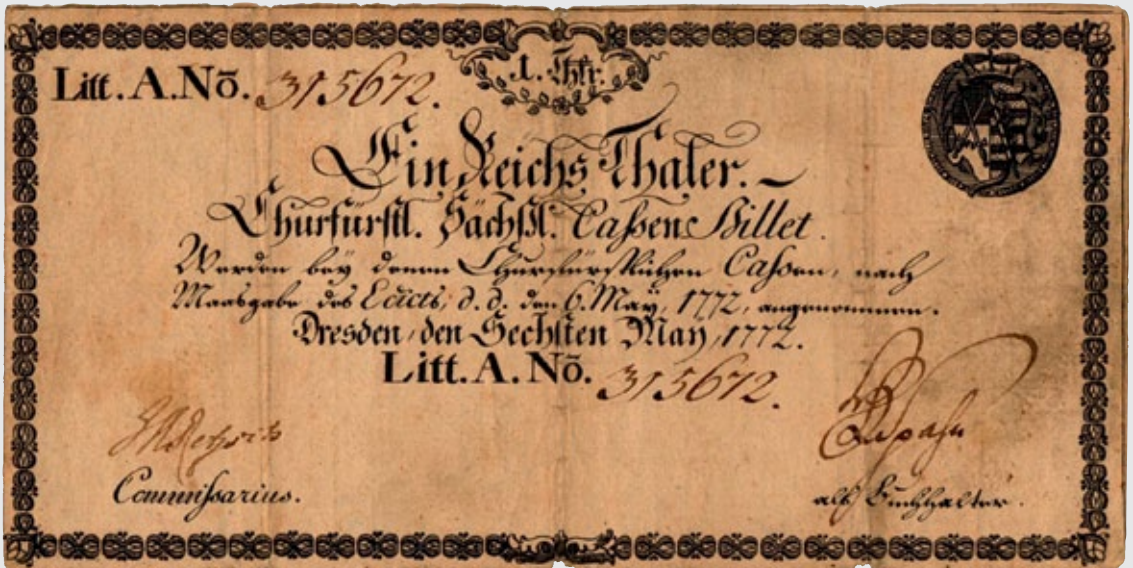 1. Thlr.
Litt. A. Nō. 315672.
Ein Reichs Thaler.
Churfürstl. Sächßl. Caßen Billet.
Werden bey denen Churfürstlichen Caßen, nach
Maasgabe des Edicts, d. d. den 6. May, 1772, angenommen.
Dresden, den Sechsten May, 1772.
Litt. A. Nō. 315672.
Commißarius.
alß Buchhalter.